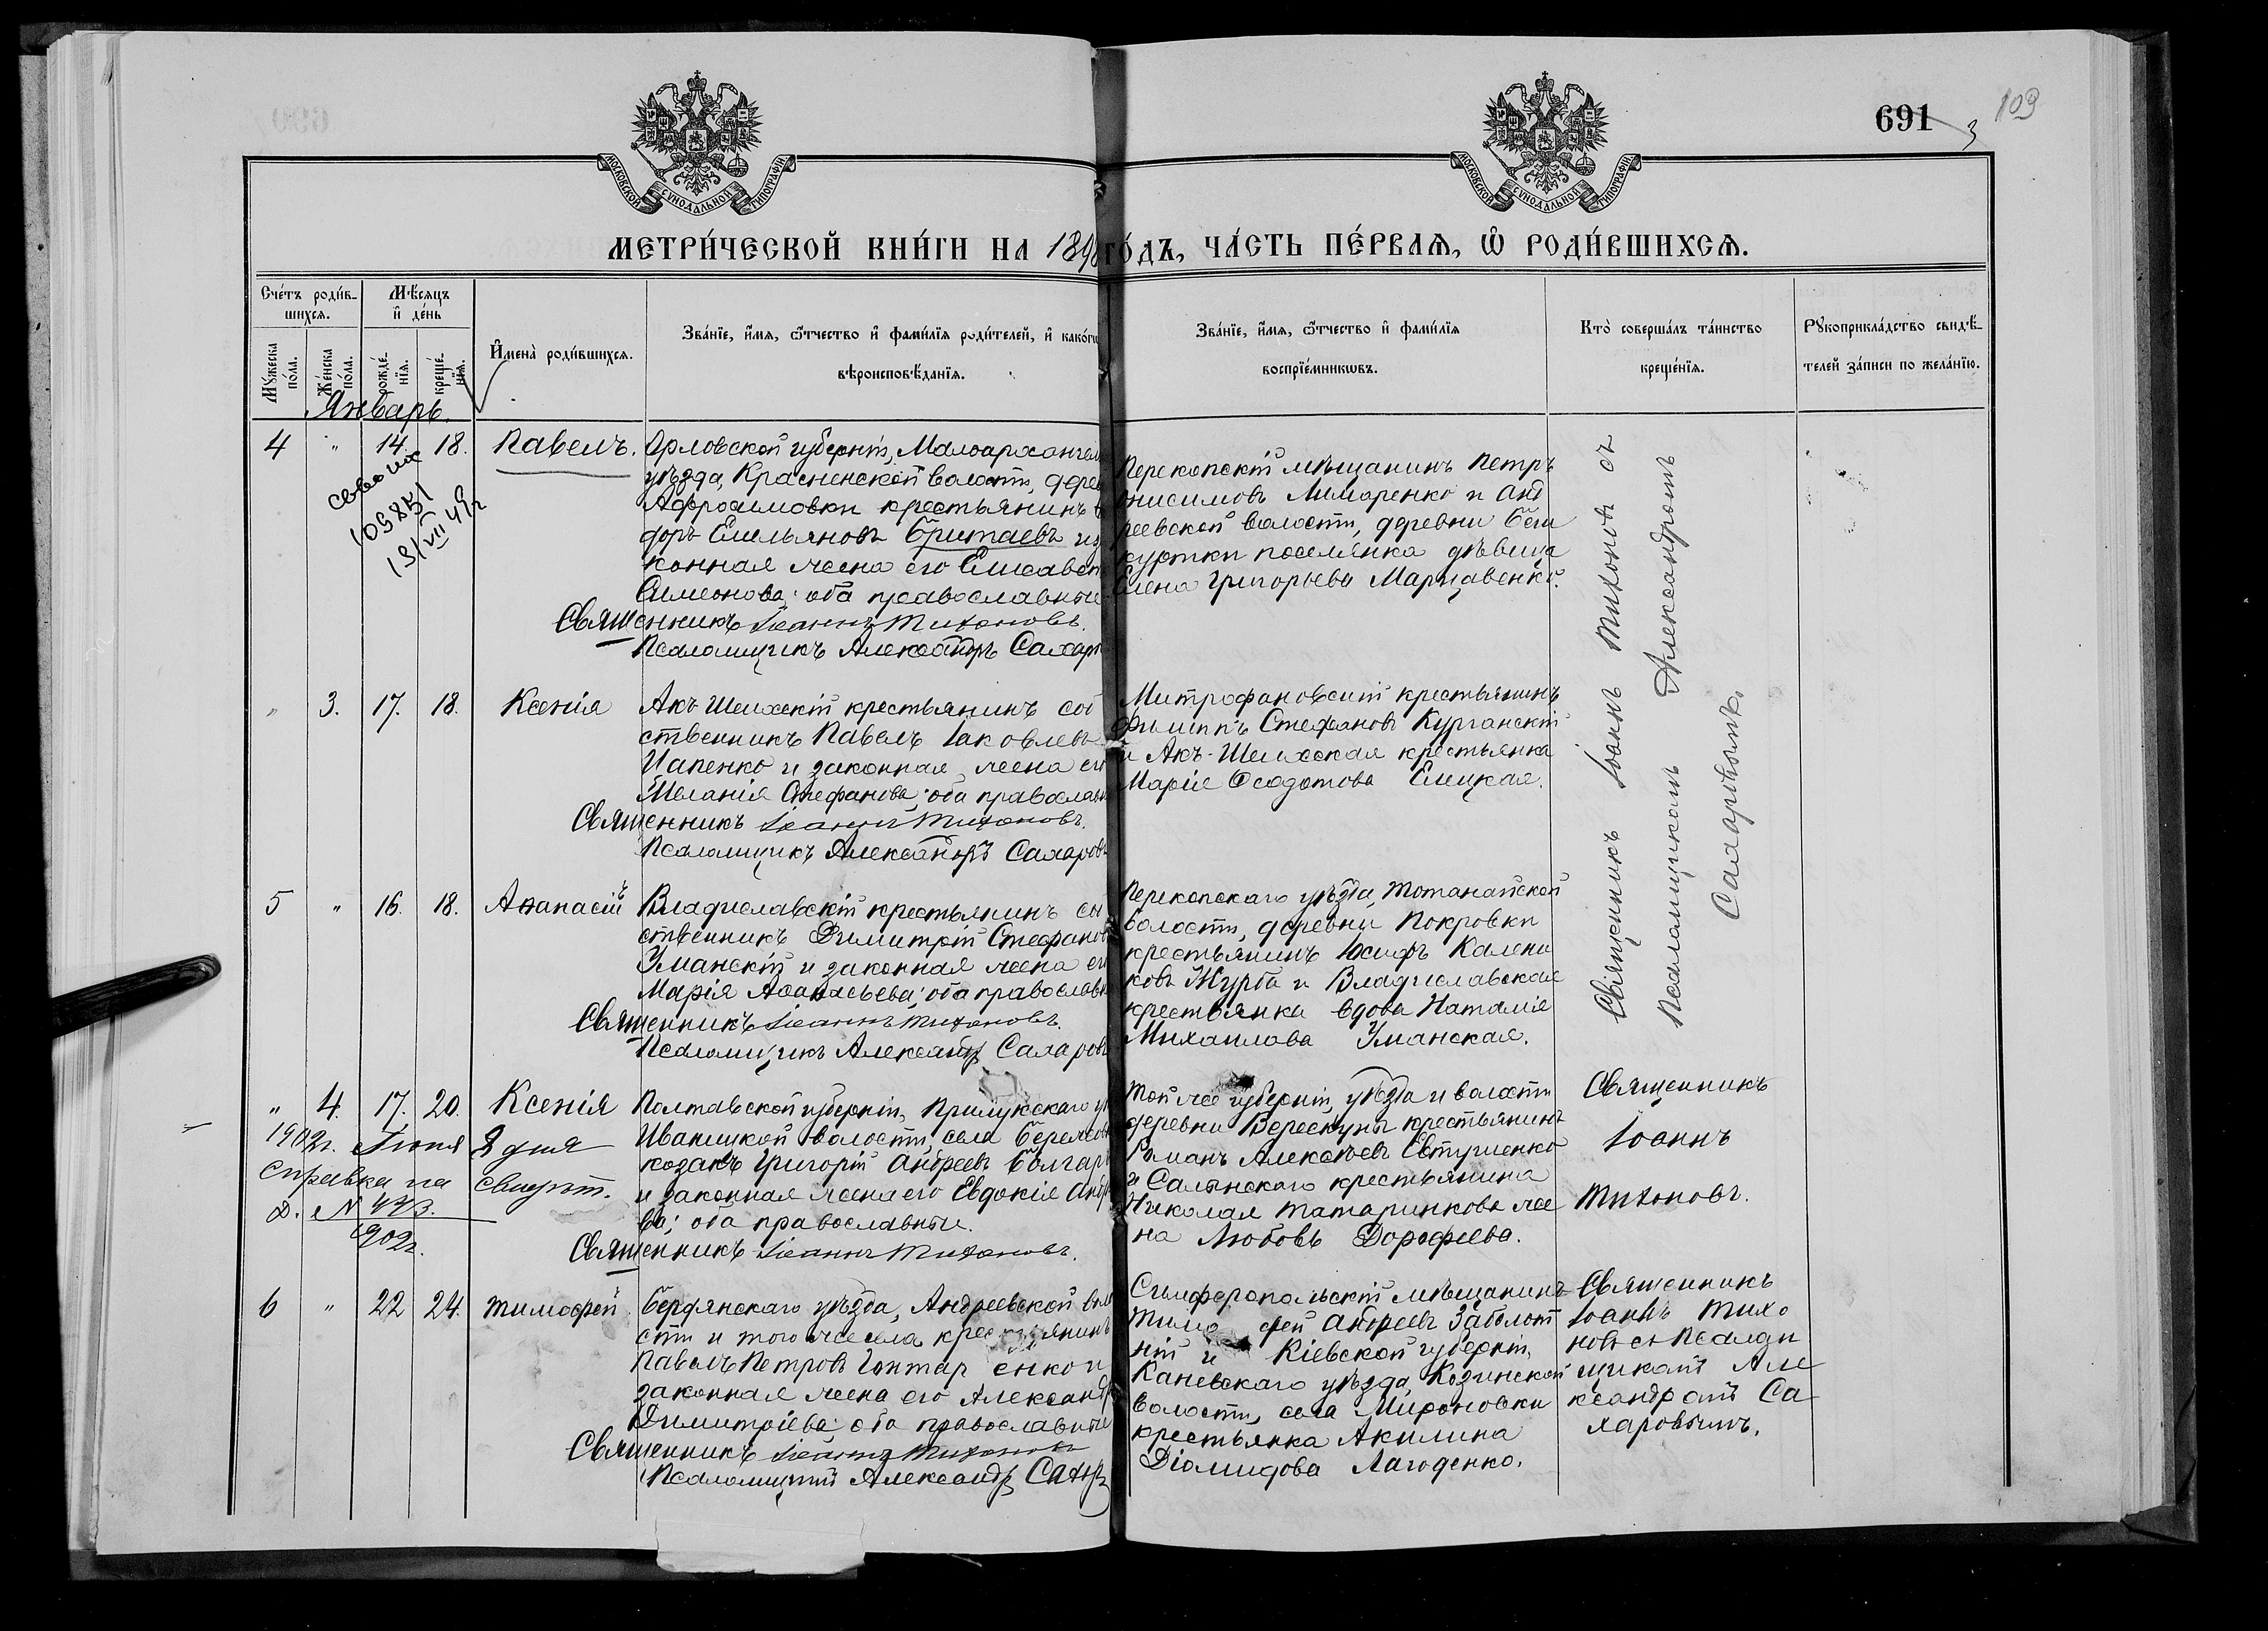 691
3
109
МОСКОВСКОЙ СУНОДАЛЬНОЙ ТИПОГРАФІИ
МОСКОВСКОЙ СУНОДАЛЬНОЙ ТИПОГРАФІИ
МЕТРИ́ЧЕСКОЙ КНИ́ГИ НА 1898 ГО́ДЪ, ЧА́СТЬ ПЕ́РВАѦ, Ѡ҆ РОДИ́ВШИХСѦ.
Сче́тъ роди́в-
шихсѧ.
Мꙋ́жеска по́ла.
Же́нска по́ла.
Мѣ́сѧцъ и҆ де́нь
рожде́-
нїѧ.
креще́-
нїѧ.
И҆мена̀ роди́вшихсѧ.
Зва́нїе, и҆́мѧ, ѻ҆́тчество и҆ фами́лїѧ роди́телей, и҆ како́гѡ
вѣроисповѣ́данїѧ.
Зва́нїе, и҆́мѧ, ѻ҆́тчество и҆ фами́лїѧ
воспрїе́мникѡвъ.
Кто̀ соверша́лъ та́инство
креще́нїѧ.
Рꙋкоприкла́дство свидѣ́-
телей за́писи по жела́нїю.
Январь.
4 " 14. 18. Павелъ.
Орловской губерніи, Малоархангел
уѣзда, Красненской волости, дерев
Афросимовки крестьянинъ
доръ Емельяновъ Бритаевъ и з
конная жена его Елисавет
Симеонова; оба православные
Священникъ Іоаннъ Тихоновъ.
Псаломщикъ Александръ Сахаро
109851
13/VII 49г
Перекопскій мѣщанинъ Петръ
Онисимовъ Лимаренко и Анд
реевской волости, деревни
куртки поселянка дѣвица
Елена Григорьева Марцавенко.
Священникъ Іоаннъ Тихоновъ съ
Псаломщикомъ Александромъ
Сахаровымъ.
" 3. 17. 18. Ксенія
Акъ Шеихскій крестьянинъ соб
ственникъ Павелъ Іаковлевъ
Цапенко и законная жена ег
Меланія Стефанова; оба православн
Священникъ Іоаннъ Тихоновъ.
Псаломщикъ Александръ Сахаровъ
Митрофановскій крестьянинъ
Филиппъ Стефановъ Курганскій
и Акъ-Шеихская крестьянка
Марія Ѳеодотова Елицкая.
5 " 16. 18. Аѳанасій
Владиславскій крестьянинъ со
ственникъ Димитрій Стефановъ
Уманскій и законная жена ег
Марія Аѳанасьева; оба православн
Священникъ Іоаннъ Тихоновъ.
Псаломщикъ Александръ Сахаровъ
Перекопскаго уѣзда, Тотанайской
волости, деревни Покровки
крестьянинъ Іосифъ Калени
ковъ Журба и Владиславская
крестьянка вдова Наталія
Михаилова Уманская.
" 4. 17. 20. Ксенія
1902г. Іюня 8 дня
Справка на
№ 443.
1902г.
Полтавской губерніи, Прилукскаго у
Иваницкой волости, села
козакъ Григорій Андреевъ Болгар
и законная жена его Евдокія Андр
ва; оба православные.
Священникъ Іоаннъ Тихоновъ.
Той же губерніи, уѣзда и волости
деревни Верескуны крестьянинъ
Романъ Алексѣевъ Евтушенко
и Салынскаго крестьянина
Николая Татаринкова же
на Любовь Дорофеева.
Священникъ
Іоаннъ
Тихоновъ.
6 " 22 24. Тимофей
Бердянскаго уѣзда, Андреевской вол
сти и того же села крестьянинъ
Павелъ Петровъ Гонтаренко и
законная жена его Александр
Димитріева; оба православные
Священникъ Іоаннъ Тихоновъ
Псаломщикъ Александръ Сахар
Симферопольскій мѣщанинъ
Тимофей Андреевъ Заболот
ній и Кіевской губерніи,
Каневскаго уѣзда, Козинской
волости, села Мироновки
крестьянка Акилина
Діомидова Лагоденко.
Священникъ
Іоаннъ Тихо
новъ съ Псалом
щикомъ Але
ксандромъ Са
харовымъ.